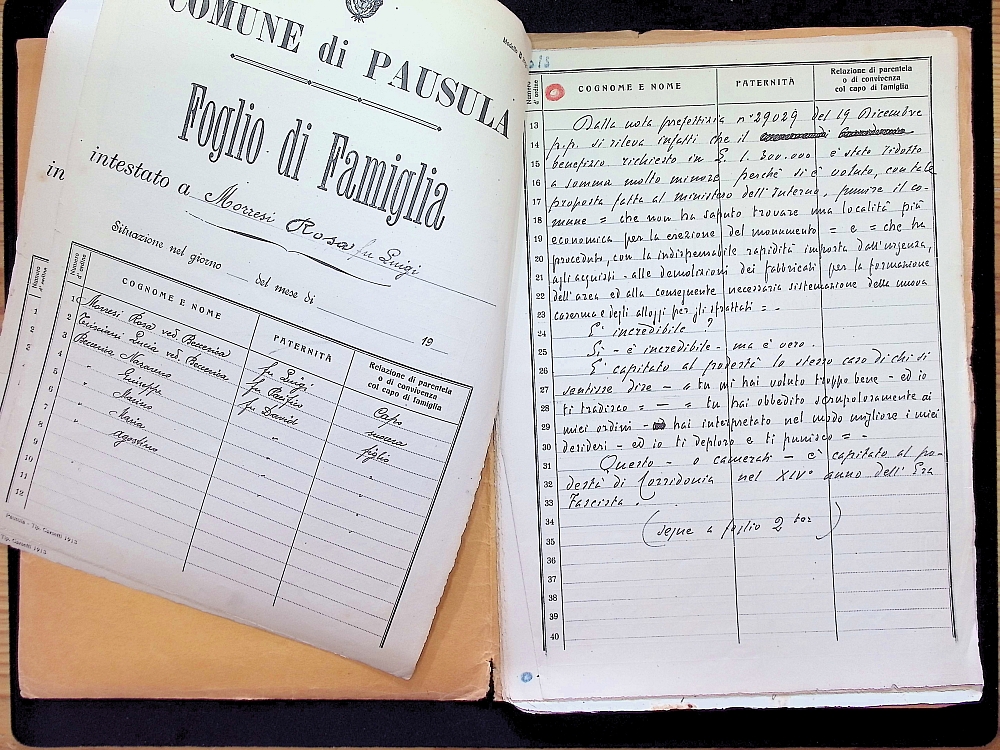 COMUNE di PAUSULA
Foglio di Famiglia
intestato a Morresi Rosa fu Luigi
Situazione nel giorno del mese di 19
in
Numero d'ordine
COGNOME E NOME
PATERNITÀ
Relazione di parentela o di convivenza col capo di famiglia
1 Morresi Rosa ved. fu Luigi Capo
2 Lucia ved. fu Pacifico nuora
3 Nazareno fu David figlio
4 " Giuseppe " "
5 " "
6 " Maria "
7 " Agostino
8
9
10
11
12
Pausula - Tip. Garzetti 1913
Tip. Garzetti 1913
Numero d'ordine
COGNOME E NOME
PATERNITÀ
Relazione di parentela
o di convivenza
col capo di famiglia
13 Dalla nota prefettizia n° 29029 del 19 Dicembre
14 p.p. si rileva infatti che il
15 benefizio richiesto in £. 1.300.000 è stato ridotto
16 a somma molto minore perchè si è voluto, con tale
17 proposta fatta al ministero dell'Interno, punire il co-
18 mune = che non ha saputo trovare una località più
19 economica per la erezione del monumento = e = che ha
20 proceduto, con la indispensabile rapidità imposta dall'urgenza,
21 agli acquisti - alle demolizioni dei fabbricati per la formazione
22 dell'area ed alla conseguente necessaria sistemazione della nuova
23 caserma e degli alloggi per gli sfrattati = -
24 E' incredibile ?
25 Si - è incredibile - ma è vero.
26 E' capitato al podestà lo stesso caso di chi si
27 sentisse dire - a tu mi hai voluto troppo bene - ed io
28 ti tradisco = — = tu hai obbedito scrupolosamente ai
29 miei ordini - hai interpretato nel modo migliore i miei
30 desideri - ed io ti deploro e ti punisco = -
31 Questo - o camerati - è capitato al po-
32 destà di Corridonia nel XIV° anno dell'Era
33 Fascista.
34 (segue a foglio 2 ter)
35
36
37
38
39
40